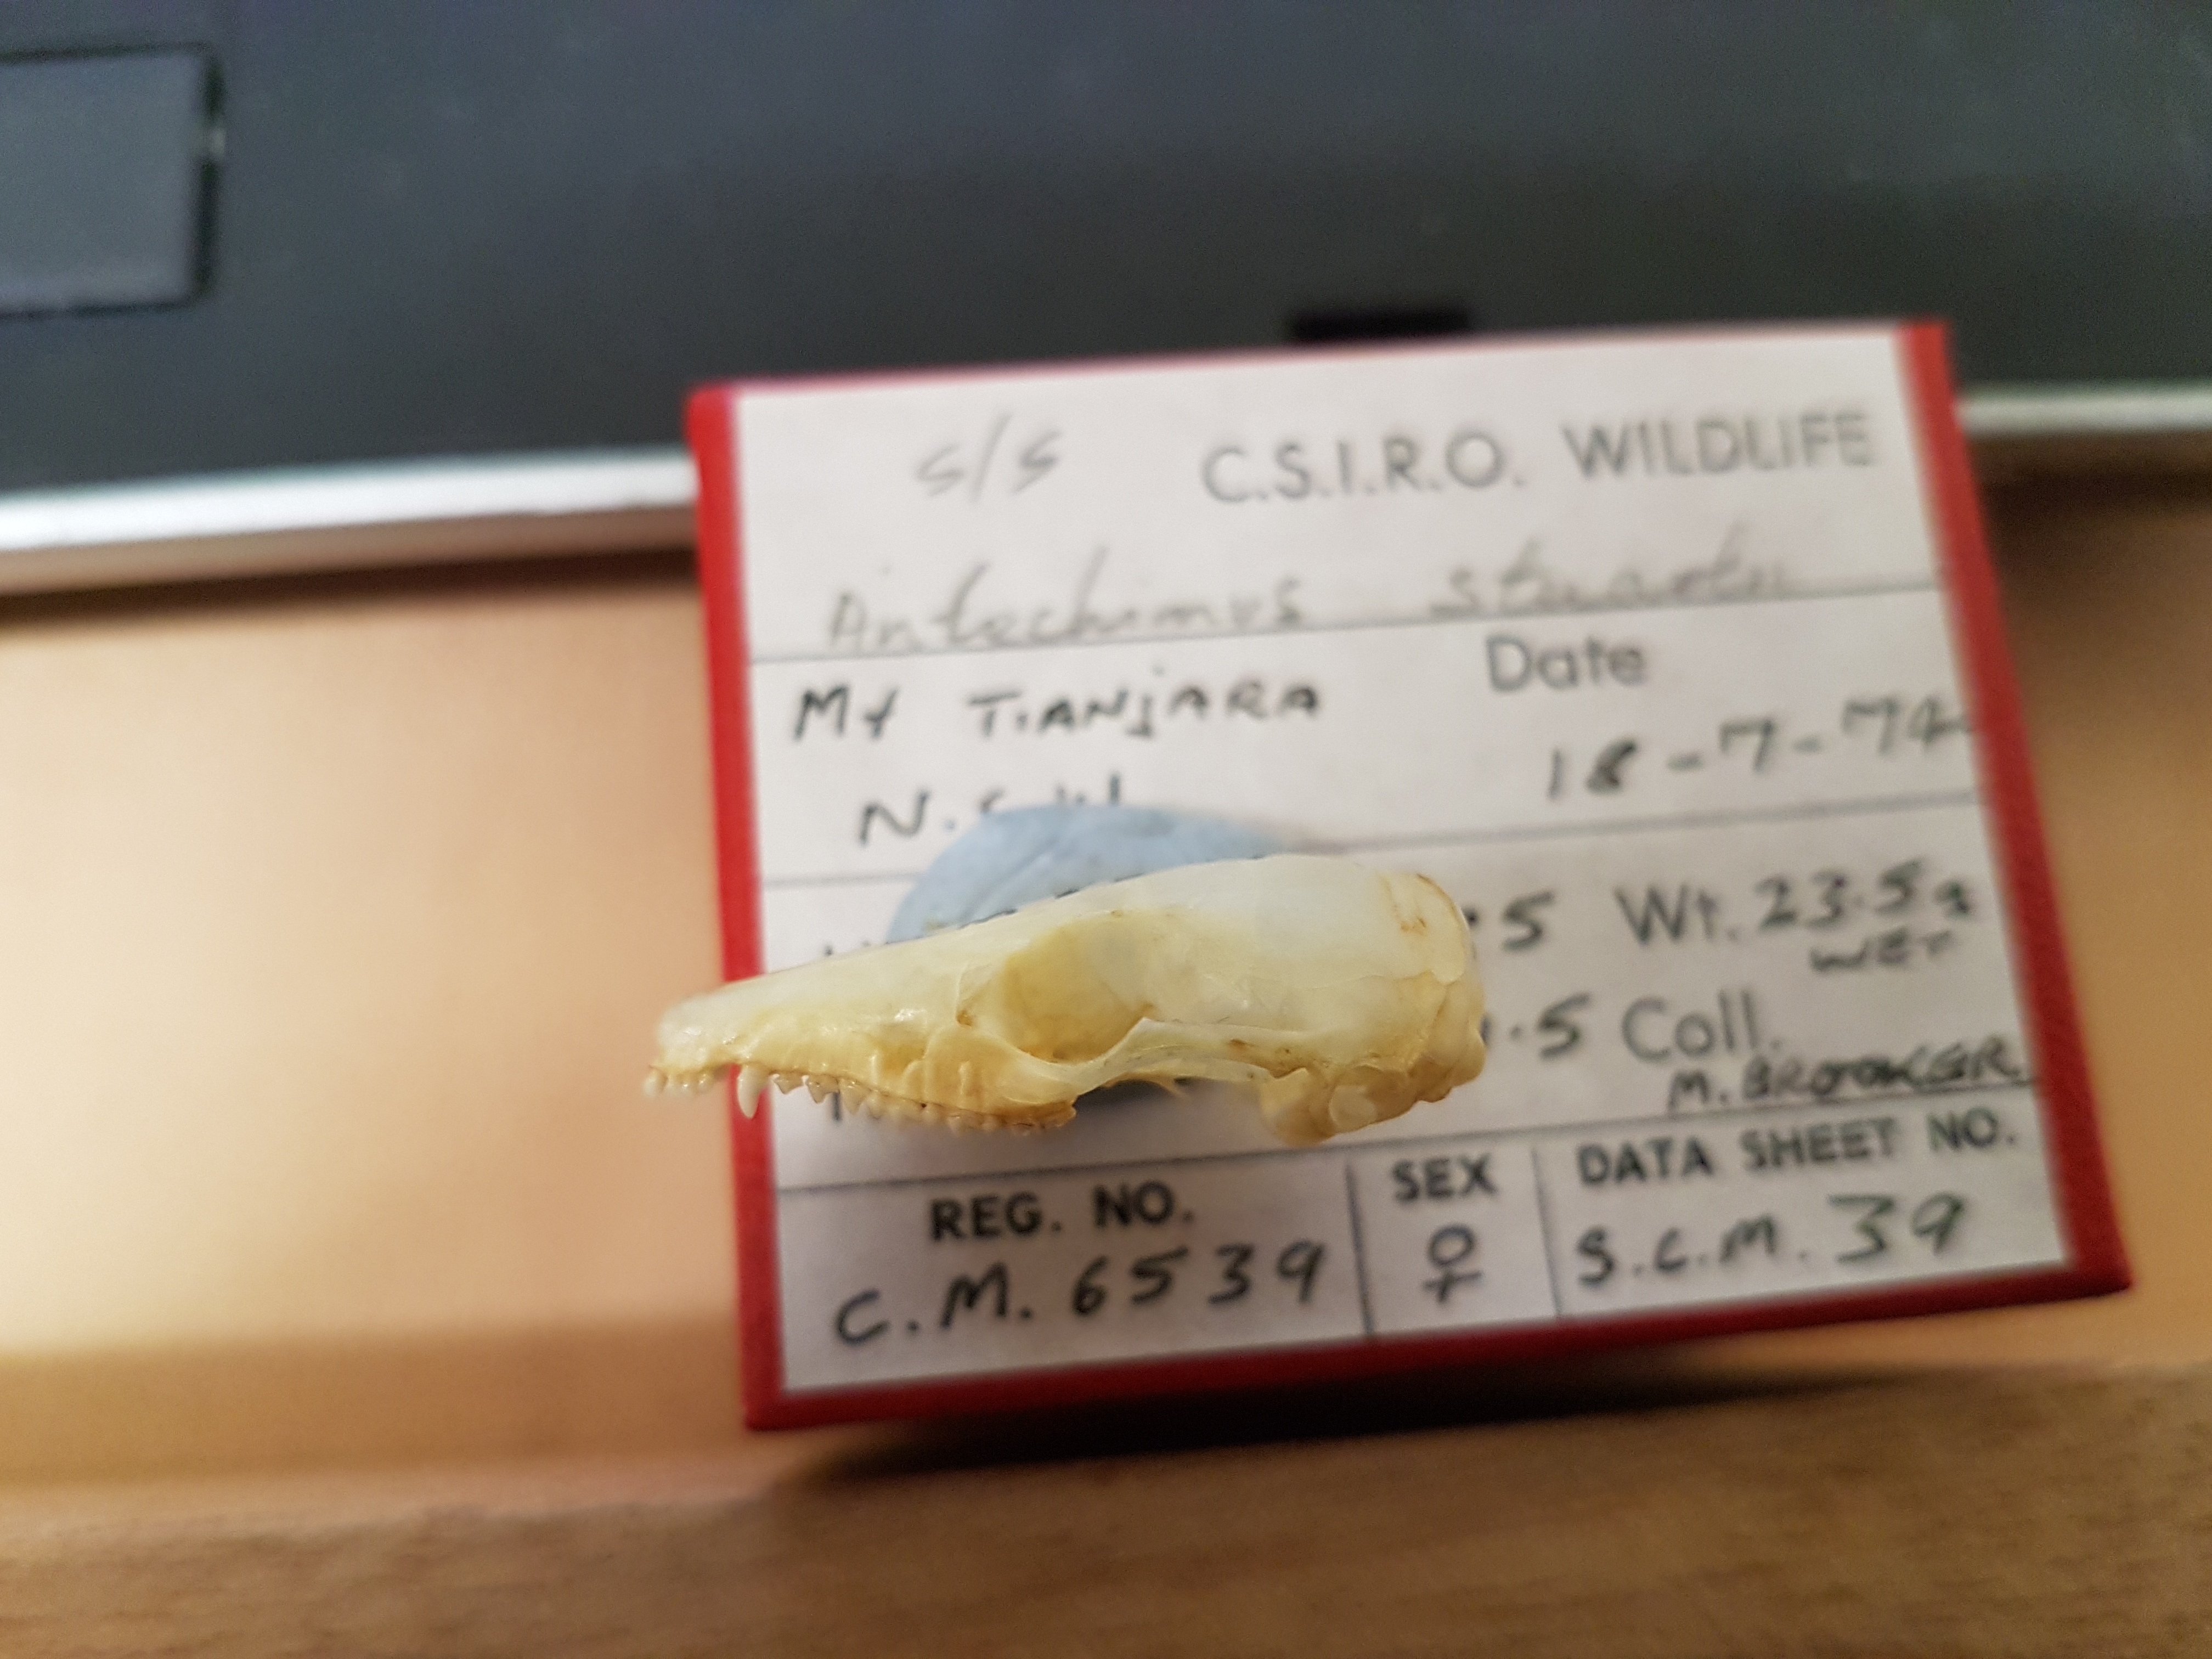 s/s C.S.I.R.O. WILDLIFE
Antechinus stuartii
Mt TIANJARA Date
N.S.W. 18-7-74
.5 Wt. 23.5g
WET
.5 Coll.
M. BROOKER.
REG. NO. SEX DATA SHEET NO.
C.M. 6539 ♀ S.C.M. 39